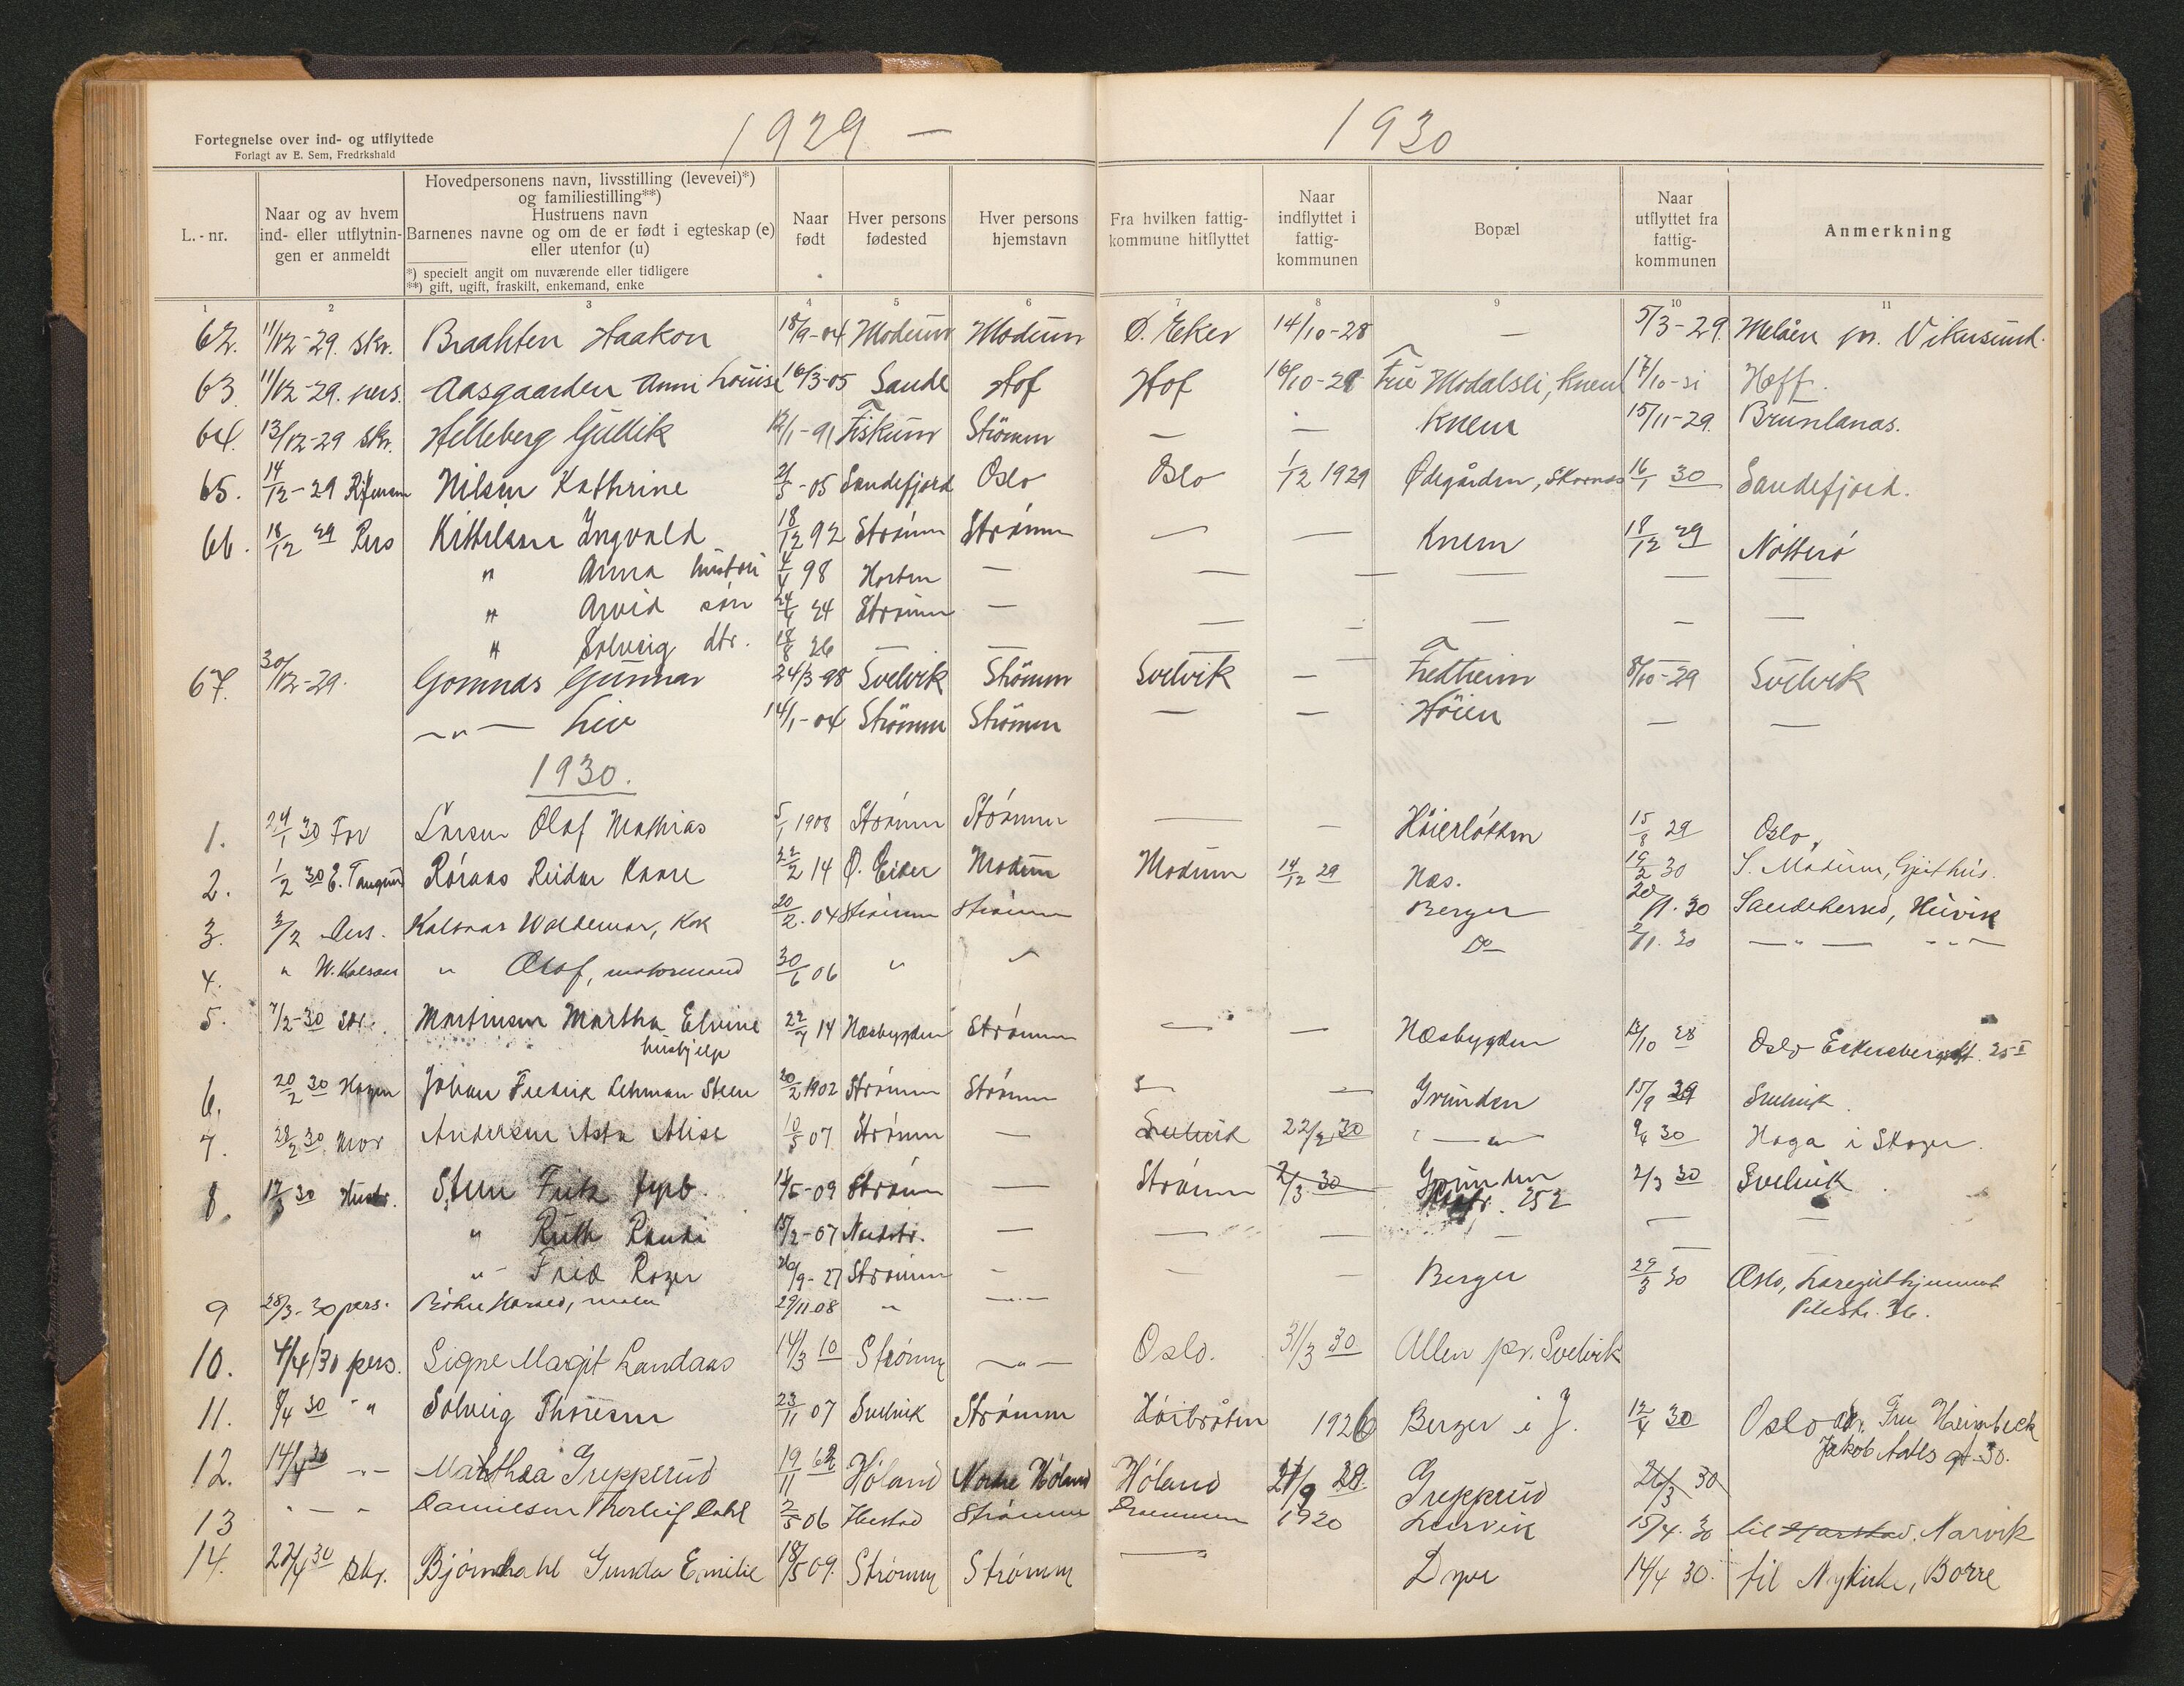 1929 — 1930
Fortegnelse over ind- og utflyttede
Forlagt av E. Sem, Fredrkshald
L.-nr.
Naar og av hvem ind- eller utflytnin-gen er anmeldt
Hovedpersonens navn, livsstilling (levevei)*)
og familiestilling**)
Hustruens navn
Barnenes navne og om de er født i egteskap (e)
eller utenfor (u)
*) specielt angit om nuværende eller tidligere
**) gift, ugift, fraskilt, enkemand, enke
Naar født
Hver persons fødested
Hver persons hjemstavn
Fra hvilken fattig-kommune hitflyttet
Naar indflyttet i fattig-kommunen
Bopæl
Naar utflyttet fra fattig-kommunen
Anmerkning
1 2 3 4 5 6 7 8 9 10 11
62. 11/12-29. skr. Braahten Haakon 18/9-04 Modum Modum Ø. Eker 14/10-28 — 5/3-29. Melåen pr. Vikersund.
63. 11/12-29. pers. Aasgaarden Anni Louise 16/3-05 Sande Hof Hof 16/10-29 Fru Modalsli, Knem 17/10-si Hoff.
64. 13/12-29 skr. Helleberg Gullik 12/1-91 Fiskum Strømm — — Knem 15/11-29. Brunlanas.
65. 14/12-29 Nilsen Kathrine 2/5-05 Sandefjord Oslo Oslo 1/12 1929 Ødegården, 16/1 30 Sandefjord.
66. 18/12 29 Pers Kittilsen Ingvald 18/12 92 Strømm Strømm — — Knem 18/12 29 Nøtterø
" Anna hustru 4/4 98 Horten — — — — — —
" Arvid søn 24/4 24 Strømm — — — — — —
" Solveig dtr. 18/8 26 — — —
67. 30/12-29. Gomnæs Gunnar 24/3-98 Svelvik Strømm Svelvik — Fredheim 8/10-29 Svelvik
—"— Liv 14/1-04 Strømm Strømm — — Høien — —
1930.
1. 24/1 30 Larsen Olaf Mathias 5/1 1908 Strømm Strømm — — 15/8 29 Oslo
2. 1/2 30 Røraas Reidar Kaare 22/2 14 Ø. Eiker Modum Modum 14/12 29 Næs. 19/2 30 S. Modum, Gjethus.
3. 3/2 Pers. Kalsnæs Waldemar, Kok 20/2. 04 Strømm Strømm Berger 20/1. 30 Sandeherred,
4. " " Olaf, motormand 30/6 06 " " Do 2/1. 30 —"— —"—
5. 7/2-30 skr. Martinsen Martha Elvine 22/7 14 Næsbygden Strømm — — Næsbygden 28 Oslo Eckersbergsgt. 25 I
husbjelp
6. 20/2 30 Hagen Johan Fredrik Lehman Steen 20/2 1902 Strømm Strømm — — Grunden 15/9 29 Svelvik.
7. 28/2 30 Mor Andersen Asta Alise 10/5 07 Strømm — Svelvik 22/2 30 —"— 9/4 30 Haga i Skoger.
8. 12/3 30 Hustr. Steen Fritz fyrb. 14/5-09 Strømm — Strømm 2/3 30 Grunden 2/3 30 Svelvik.
252
" Ruth Randi 15/2-07 — — — — — —
" Fred Roger 26/9-27 Strømm — — — Berger 29/3 30 Oslo,
9 28/3-30 pers. 29/11-08 " —"— Pilestr. 36.
10. 4/4/30 pers. Signe Magit Landaas 14/3 10 Strømm —"— Oslo. 31/3 30 Allen pr. Svelvik
11. 8/4 30 " Solveig Thoresen 23/11 07 Svelvik Strømm Høibråten 1926 Berger i J. 12/4 30 Oslo adr. Fru Heimbeck
Jakob Aalls gt. 30.
12. 14/4 30 — Marthea Grepperud 19/11 62 Høland Nordre Høland Høland 21/9 29. Grepperud 26/3 30
13 " — " Danielsen Thorleif Dahl 2/5 06 Strømm Drammen 1920 Leirvik 15/4. 30 til Harstad. Narvik
14. 22/4 30 skr. Bjørndahl Gunda Emilie 18/5 09. Strømm Strømm — Dyve 14/4 30. til Nykirke, Borre